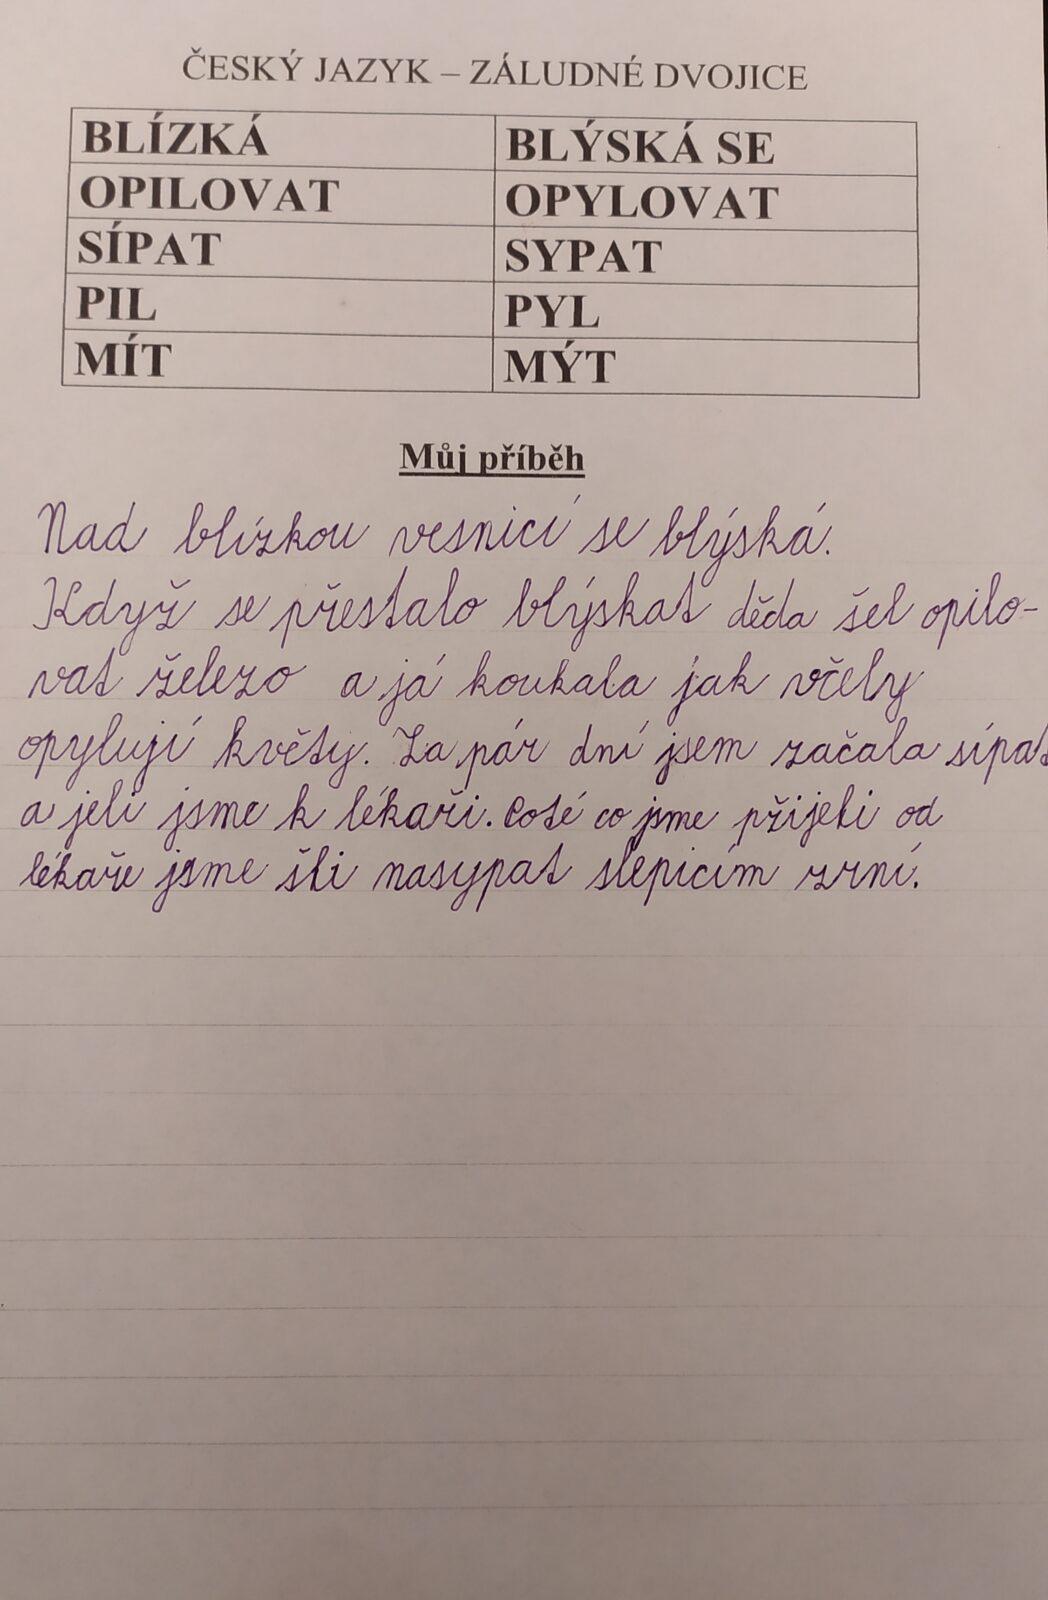 ČESKÝ JAZYK – ZÁLUDNÉ DVOJICE
BLÍZKÁ BLÝSKÁ SE
OPILOVAT OPYLOVAT
SÍPAT SYPAT
PIL PYL
MÍT MÝT
Můj příběh
Nad blízkou vesnicí se blýská.
Když se přestalo blýskat děda šel opilo-
vat železo a já koukala jak včely
opylují květy. Za pár dní jsem začala sípat
a jeli jsme k lékaři. Poté co jsme přijeli od
lékaře jsme šli nasypat slepicím zrní.